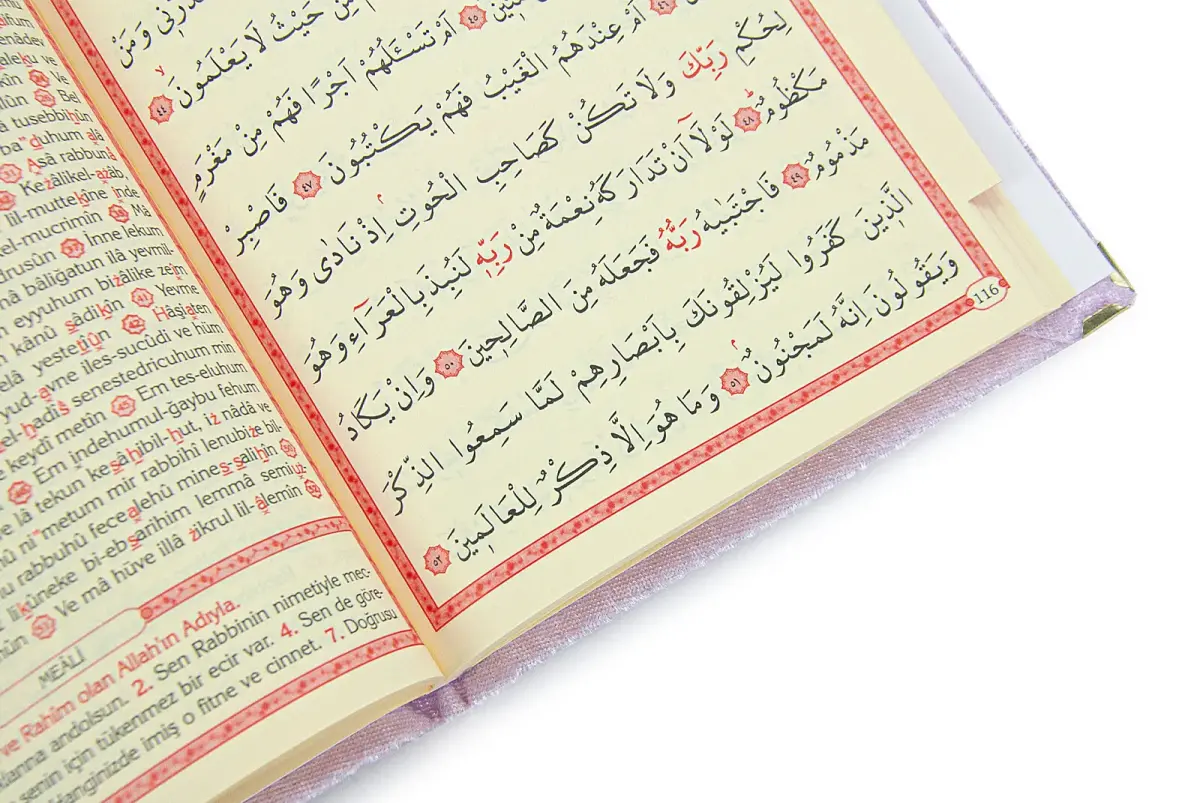 وَمَنْ
مِنْ حَيْثُ لَا يَعْلَمُونَ ﴿٤٤﴾
﴿٤٥﴾ اَمْ تَسْـَٔلُهُمْ اَجْرًا فَهُمْ مِنْ مَغْرَمٍ
﴿٤٦﴾ اَمْ عِنْدَهُمُ الْغَيْبُ فَهُمْ يَكْتُبُونَ ﴿٤٧﴾ فَاصْبِرْ
لِحُكْمِ رَبِّكَ وَلَا تَكُنْ كَصَاحِبِ الْحُوتِ اِذْ نَادٰى وَهُوَ
مَكْظُومٌ ﴿٤٨﴾ لَوْلَٓا اَنْ تَدَارَكَهُ نِعْمَةٌ مِنْ رَبِّهٖ لَنُبِذَ بِالْعَرَٓاءِ وَهُوَ
مَذْمُومٌ ﴿٤٩﴾ فَاجْتَبٰيهُ رَبُّهُ فَجَعَلَهُ مِنَ الصَّالِحٖينَ ﴿٥٠﴾ وَاِنْ يَكَادُ
الَّذٖينَ كَفَرُوا لَيُزْلِقُونَكَ بِاَبْصَارِهِمْ لَمَّا سَمِعُوا الذِّكْرَ
وَيَقُولُونَ اِنَّهُ لَمَجْنُونٌ ﴿٥١﴾ وَمَا هُوَ اِلَّا ذِكْرٌ لِلْعَالَمٖينَ ﴿٥٢﴾
116
Ve
Bel
tusebbihûn
duhum alâ
Asâ rabbunâ
Kezâlikel-azâb,
lil-muttekîne inde
el-mucrimîn Mâ
İnne lekum
bâliğatun ilâ yevmil-
eyyuhum bizâlike zeîm
kânû sâdikîn 41 Yevme
yestetîûn 42 Hâşiaten
iles-sucûdi ve hüm
senestedricuhum min
keydî metîn 45 Em tes-eluhum
46 Em indehumul-ğaybu fehum
lâ tekun kesâhibil-hut, iz nâdâ ve
ni"metum mir rabbihî lenubize bil-
rabbuhû fecealehû mines-sâlihîn 50
bi-ebsarihim lemmâ semiuz-
Ve mâ hüve illâ zikrul lil-âlemîn 52
MEÂLİ
ve Rahîm olan Allah'ın Adıyla.
andolsun. 2. Sen Rabbinin nimetiyle mec-
senin için tükenmez bir ecir var. 4. Sen de göre-
Hanginizde imiş o fitne ve cinnet. 7. Doğrusu